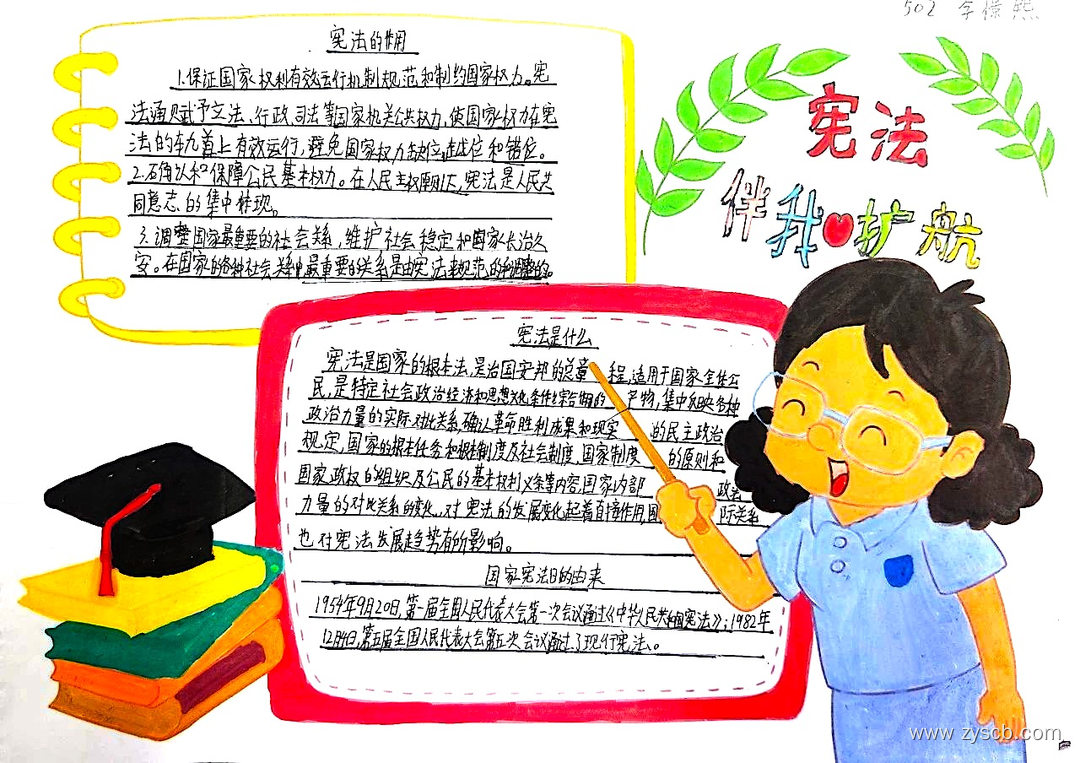 502 李憬熙
宪法
伴我护航
宪法的作用
1.保证国家权利有效运行机制规范和制约国家权力。宪
法通赋予立法、行政、司法等国家机关公共权力,使国家权力在宪
法的轨道上有效运行,避免国家权力缺位越位和错位。
2.确认和保障公民基本权力。在人民主权原则下,宪法是人民共
同意志的集中体现。
3.调整国家最重要的社会关系,维护社会稳定和国家长治久
安。在国家的各种社会关系中最重要的关系是由宪法来规范的和调整的。
宪法是什么
宪法是国家的根本法,是治国安邦的总章程,适用于国家全体公
民,是特定社会政治经济和思想文化条件综合作用的产物,集中反映各种
政治力量的实际对比关系,确认革命胜利成果和现实的民主政治
规定,国家的根本任务和根本制度及社会制度,国家制度的原则和
国家政权的组织及公民的基本权利义务等内容,国家内部政治
力量的对比关系的变化,对宪法的发展变化起着直接作用,国际关系
也对宪法发展趋势有所影响。
国家宪法日的由来
1954年9月20日,第一届全国人民代表大会第一次会议通过《中华人民共和国宪法》;1982年
12月4日,第五届全国人民代表大会第五次会议通过了现行宪法。
www.zyscb.com